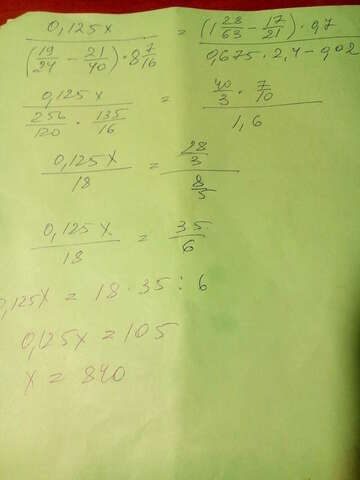 0,125x / ((19/24 - 21/40) · 8 7/16) = ((1 28/63 - 17/21) · 0,7) / (0,675 · 2,4 - 0,02)
0,125x / (256/120 · 135/16) = (40/3 · 7/10) / 1,6
0,125x / 18 = (28/3) / (8/5)
0,125x / 18 = 35/6
0,125x = 18 · 35 : 6
0,125x = 105
x = 840